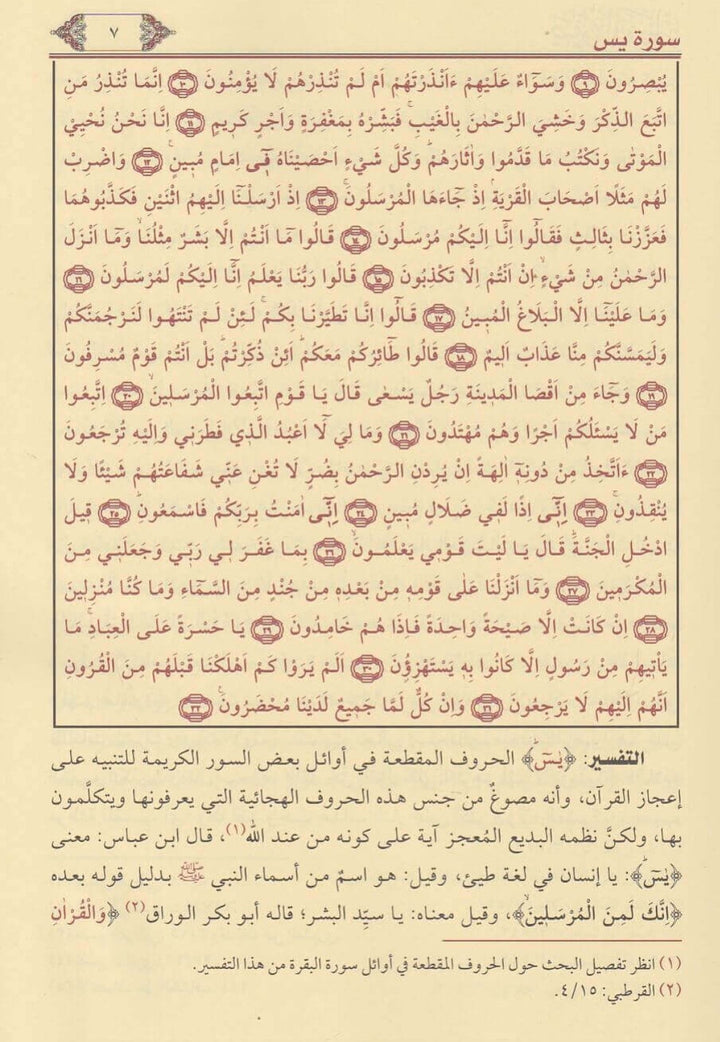 سورة يس
٧
يُبْصِرُونَ ﴿٩﴾ وَسَوَٓاءٌ عَلَيْهِمْ ءَاَنْذَرْتَهُمْ اَمْ لَمْ تُنْذِرْهُمْ لَا يُؤْمِنُونَ ﴿١٠﴾ اِنَّمَا تُنْذِرُ مَنِ
اتَّبَعَ الذِّكْرَ وَخَشِيَ الرَّحْمٰنَ بِالْغَيْبِۚ فَبَشِّرْهُ بِمَغْفِرَةٍ وَاَجْرٍ كَرِيمٍ ﴿١١﴾ اِنَّا نَحْنُ نُحْيِي
الْمَوْتٰى وَنَكْتُبُ مَا قَدَّمُوا وَاٰثَارَهُمْۜ وَكُلَّ شَيْءٍ اَحْصَيْنَاهُ فٓي اِمَامٍ مُبِينٍ۟ ﴿١٢﴾ وَاضْرِبْ
لَهُمْ مَثَلًا اَصْحَابَ الْقَرْيَةِۢ اِذْ جَٓاءَهَا الْمُرْسَلُونَۚ ﴿١٣﴾ اِذْ اَرْسَلْنَٓا اِلَيْهِمُ اثْنَيْنِ فَكَذَّبُوهُمَا
فَعَزَّزْنَا بِثَالِثٍ فَقَالُٓوا اِنَّٓا اِلَيْكُمْ مُرْسَلُونَ ﴿١٤﴾ قَالُوا مَٓا اَنْتُمْ اِلَّا بَشَرٌ مِثْلُنَاۙ وَمَٓا اَنْزَلَ
الرَّحْمٰنُ مِنْ شَيْءٍۙ اِنْ اَنْتُمْ اِلَّا تَكْذِبُونَ ﴿١٥﴾ قَالُوا رَبُّنَا يَعْلَمُ اِنَّٓا اِلَيْكُمْ لَمُرْسَلُونَ ﴿١٦﴾
وَمَا عَلَيْنَٓا اِلَّا الْبَلَاغُ الْمُبِينُ ﴿١٧﴾ قَالُٓوا اِنَّا تَطَيَّرْنَا بِكُمْۚ لَئِنْ لَمْ تَنْتَهُوا لَنَرْجُمَنَّكُمْ
وَلَيَمَسَّنَّكُمْ مِنَّا عَذَابٌ اَلِيمٌ ﴿١٨﴾ قَالُوا طَٓائِرُكُمْ مَعَكُمْۜ اَئِنْ ذُكِّرْتُمْۜ بَلْ اَنْتُمْ قَوْمٌ مُسْرِفُونَ
﴿١٩﴾ وَجَٓاءَ مِنْ اَقْصَا الْمَدِينَةِ رَجُلٌ يَسْعٰى قَالَ يَا قَوْمِ اتَّبِعُوا الْمُرْسَلِينَۙ ﴿٢٠﴾ اِتَّبِعُوا
مَنْ لَا يَسْـَٔلُكُمْ اَجْرًا وَهُمْ مُهْتَدُونَ ﴿٢١﴾ وَمَا لِيَ لَٓا اَعْبُدُ الَّذِي فَطَرَنِي وَاِلَيْهِ تُرْجَعُونَ
﴿٢٢﴾ ءَاَتَّخِذُ مِنْ دُونِهٓ اٰلِهَةً اِنْ يُرِدْنِ الرَّحْمٰنُ بِضُرٍّ لَا تُغْنِ عَنِّي شَفَاعَتُهُمْ شَيْـًٔا وَلَا
يُنْقِذُونِۚ ﴿٢٣﴾ اِنّٓي اِذًا لَفِي ضَلَالٍ مُبِينٍ ﴿٢٤﴾ اِنّٓي اٰمَنْتُ بِرَبِّكُمْ فَاسْمَعُونِۜ ﴿٢٥﴾ قِيلَ
ادْخُلِ الْجَنَّةَۜ قَالَ يَا لَيْتَ قَوْمِي يَعْلَمُونَۙ ﴿٢٦﴾ بِمَا غَفَرَ لِي رَبِّي وَجَعَلَنِي مِنَ
الْمُكْرَمِينَ ﴿٢٧﴾ وَمَٓا اَنْزَلْنَا عَلٰى قَوْمِهٖ مِنْ بَعْدِهٖ مِنْ جُنْدٍ مِنَ السَّمَٓاءِ وَمَا كُنَّا مُنْزِلِينَ
﴿٢٨﴾ اِنْ كَانَتْ اِلَّا صَيْحَةً وَاحِدَةً فَاِذَا هُمْ خَامِدُونَ ﴿٢٩﴾ يَا حَسْرَةً عَلَى الْعِبَادِۚ مَا
يَأْتِيهِمْ مِنْ رَسُولٍ اِلَّا كَانُوا بِهٖ يَسْتَهْزِؤُنَ ﴿٣٠﴾ اَلَمْ يَرَوْا كَمْ اَهْلَكْنَا قَبْلَهُمْ مِنَ الْقُرُونِ
اَنَّهُمْ اِلَيْهِمْ لَا يَرْجِعُونَۜ ﴿٣١﴾ وَاِنْ كُلٌّ لَمَّا جَمِيعٌ لَدَيْنَا مُحْضَرُونَ۟ ﴿٣٢﴾
التفسير: ﴿يٰسٓۜ﴾ الحروف المقطعة في أوائل بعض السور الكريمة للتنبيه على
إعجاز القرآن، وأنه مصوغٌ من جنس هذه الحروف الهجائية التي يعرفونها ويتكلَّمون
بها، ولكنَّ نظمه البديع المُعجز آية على كونه من عند الله(١)، قال ابن عباس: معنى
﴿يٰسٓۜ﴾: يا إنسان في لغة طيئ، وقيل: هو اسمٌ من أسماء النبي ﷺ بدليل قوله بعده
﴿اِنَّكَ لَمِنَ الْمُرْسَلِينَۙ﴾، وقيل معناه: يا سيِّد البشر؛ قاله أبو بكر الوراق(٢) ﴿وَالْقُرْاٰنِ
(١) انظر تفصيل البحث حول الحروف المقطعة في أوائل سورة البقرة من هذا التفسير.
(٢) القرطبي: ٤/١٥.